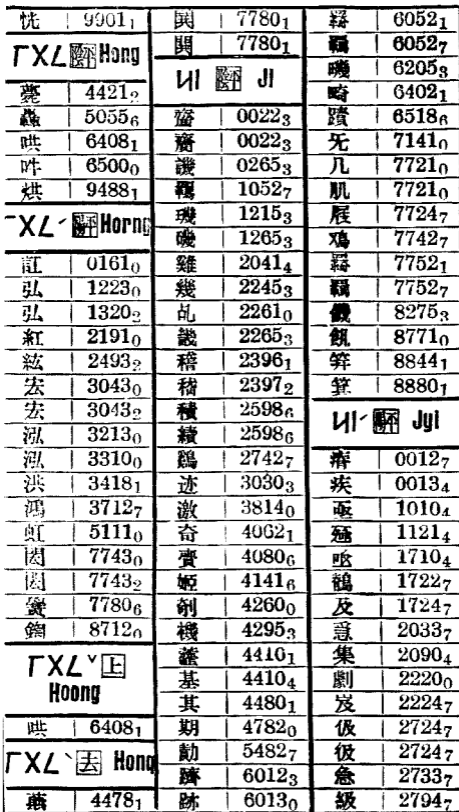 恍 9901₁
ㄏㄨㄥ 陰平 Hong
薨 4421₂
轟 5055₆
哄 6408₁
吽 6500₀
烘 9488₁
ㄏㄨㄥˊ 陽平 Horng
訌 0161₀
弘 1223₀
弘 1320₂
紅 2191₀
紘 2493₂
宏 3043₀
宏 3043₂
泓 3213₀
泓 3310₀
洪 3418₁
鴻 3712₇
虹 5111₀
閎 7743₀
閎 7743₂
黌 7780₆
8712₀
ㄏㄨㄥˇ 上 Hoong
哄 6408₁
ㄏㄨㄥˋ 去 Honq
蕻 4478₁
鬨 7780₁
鬨 7780₁
ㄐㄧ 陰平 Ji
齎 0022₃
齏 0022₃
譏 0265₃
羈 1052₇
璣 1215₃
磯 1265₃
雞 2041₄
幾 2245₃
乩 2261₀
畿 2265₃
稽 2396₁
嵇 2397₂
積 2598₆
績 2598₆
鷄 2742₇
迹 3030₃
激 3814₀
奇 4062₁
賫 4080₆
姬 4141₆
剞 4260₀
機 4295₃
4410₁
基 4410₄
其 4480₁
期 4782₀
勣 5482₇
躋 6012₃
跡 6013₀
6052₁
羈 6052₇
嘰 6205₃
畸 6402₁
蹟 6518₆
旡 7141₀
几 7721₀
肌 7721₀
屐 7724₇
鳮 7742₇
7752₁
羈 7752₇
饑 8275₃
飢 8771₀
笄 8844₁
箕 8880₁
ㄐㄧˊ 陽平 Jyi
瘠 0012₇
疾 0013₄
亟 1010₄
殛 1121₄
1710₄
鶺 1722₇
及 1724₇
2033₇
集 2090₄
劇 2220₀
岌 2224₇
伋 2724₇
彶 2724₇
急 2733₇
級 2794₇